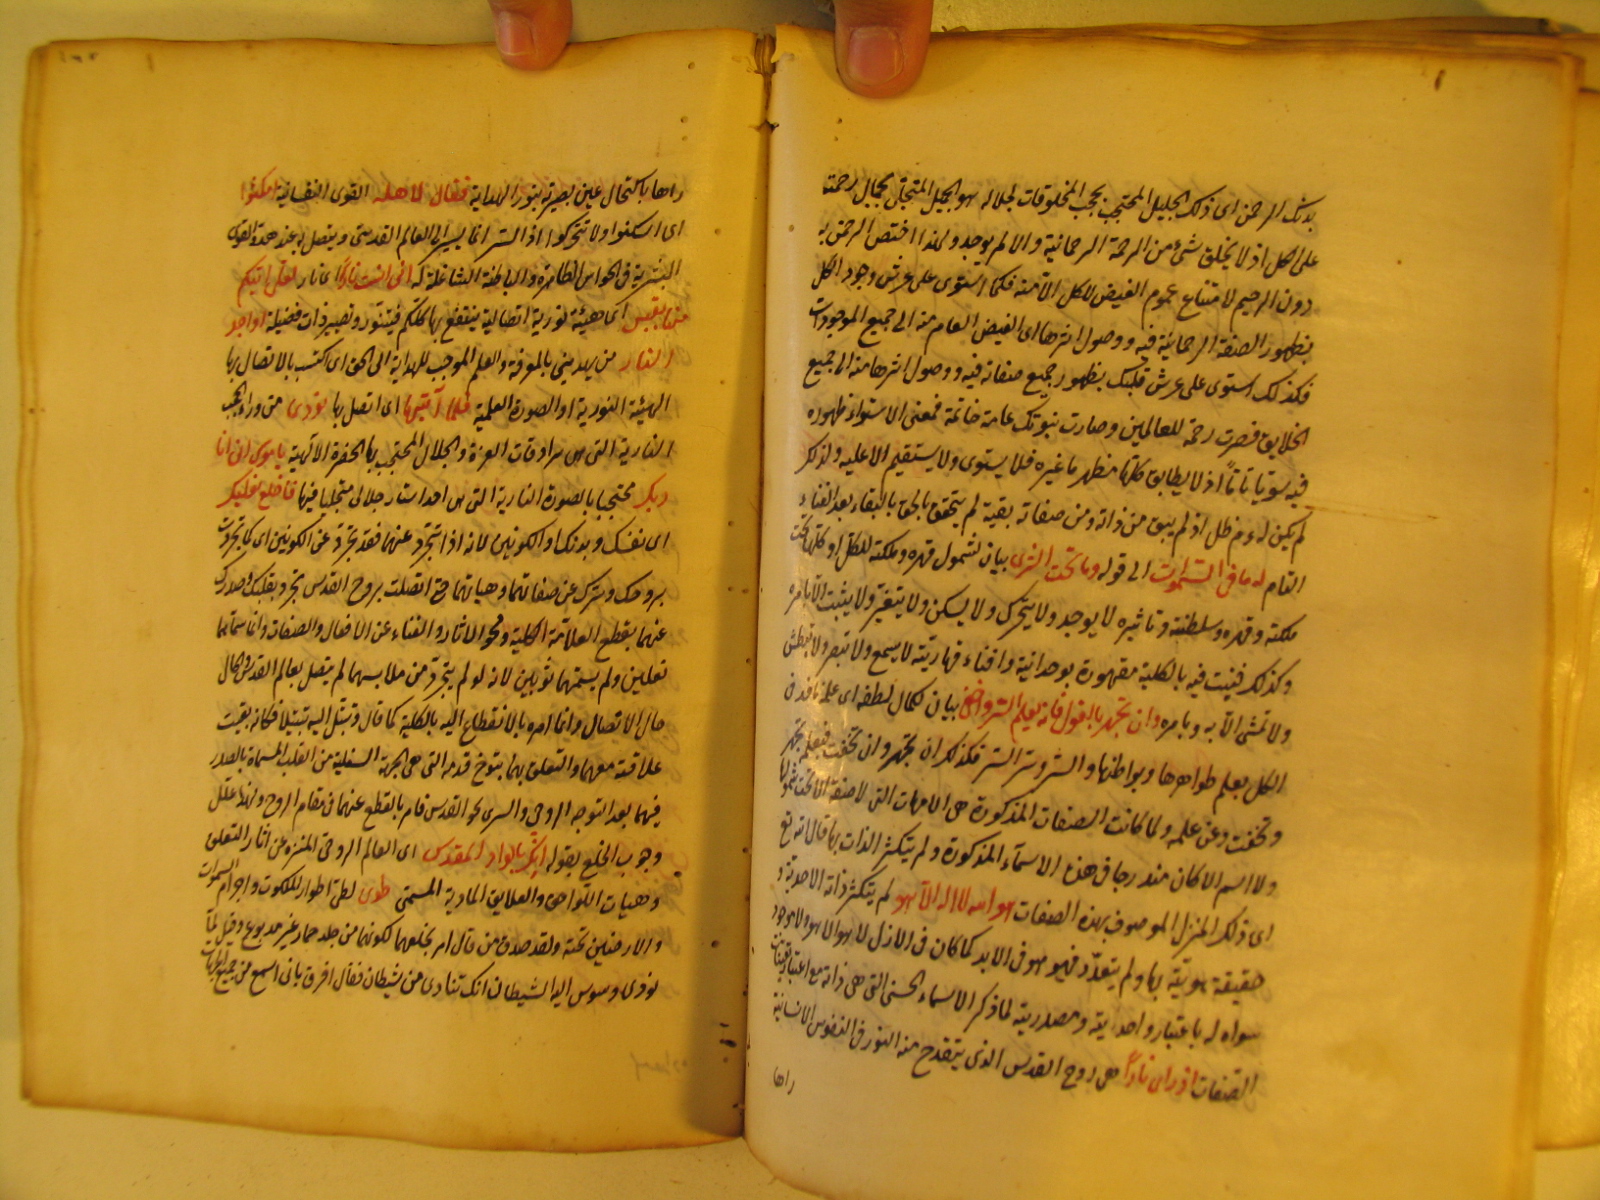 بذلك الرحمن اى ذلك الجليل المحتجب بحجب المخلوقات لجلاله هو الجميل المتجلى بجمال رحمته
على الكل اذ لا يخلق شئ من الرحمة الرحمانية والا لم يوجد ولهذا اختص الرحمن به
دون الرحيم لامتناع عموم الفيض للكل الا منه فكما استوى على عرش وجود الكل
بظهور الصفة الرحمانية فيه ووصول اثرها اى الفيض العام منه الى جميع الموجودات
فكذلك استوى على عرش قلبك بظهور جميع صفاته فيه ووصول اثرها منه الى جميع
الخلايق فصرت رحمة للعالمين وصارت نبوتك عامة خاتمة فمعنى الاستواء ظهوره
فيه سويا تاما اذ لا يطابق كلها مظهر ما غيره فلا يستوى ولا يستقيم الا عليه ولذلك
لم يكن له ءم ظل اذ لم يبق من ذاته ومن صفاته بقية لم يتحقق بالحق بالبقاء بعد الفناء
التام له ما فى السموات الى قوله وما تحت الثرى بيان لشمول قهره وملكته للكل اى كلها تحت
ملكته وقهره وسلطنته وتأثيره لا يوجد ولا يتحرك ولا يسكن ولا يتغير ولا يثبت الا بامره
وكذلك فنيت فيه بالكلية مقهورة بوحدانيته وافناء قهاريته لا يسمع ولا تبصر ولا تبطش
ولا تمشى الا به وبامره وان تجهر بالقول فانه يعلم السر واخفى بيان لكمال لطفه اى علمه نافذ فى
الكل يعلم ظواهرها وبواطنها والسر وسر السر فكذلك ان تجهر وان تخفت فيعلم بجهر
وتخفت وعن علمه ولما كانت الصفات المذكورة هى الامهات التى لا صفة الا تحت شمولها
ولا اسم الا كان مندرجا فى هذه الاسمآء المذكورة ولم يتكثر الذات بها قال الله تع
اى ذلك المنزل الموصوف بهذه الصفات هو الله لا اله الا هو لم يتكثر ذاته الاحدية و
حقيقة هويته بها ولم يتعدد فهو هو فى الابد كما كان فى الازل لا هو الا هو ولا موجود
سواه له باعتبار واحديته ومصدريته لما ذكر الاسماء الحسنى التى هى ذاته مع اعتبار تعينات
الصفات اذ راى نارا هى روح القدس الذى ينقدح منه النور فى النفوس الانسانية
راها
راها باكتحال عين بصيرته بنور الهداية فقال لاهله القوى النفسانية امكثوا
اى اسكنوا ولا تتحركوا اذ السر انما يسير الى العالم القدسى ويتصل به عند هدة القوى
البشرية فى الحواس الظاهرة والباطنة الشاغلة له انى انست نارا اى نار لعلى اتيكم
منها بقبس اى هيئة نورية اتصالية ينتفع بها كلكم فيتنور وتصير ذات فضيلة او اجد
على النار من يهدينى بالمعرفة والعلم الموجب للهداية الى الحق اى اكتسب بالاتصال بها
الهيئة النورية او الصورة العلمية فلما آتيها اى اتصل بها نودى من وراء الحجب
النارية التى هى سرادقات العزة والجلال المحتجب بها الحضرة الالهية يا موسى انى انا
ربك محتجبا بالصورة النارية التى هى احد استار جلالى متجليا فيها فاخلع نعليك
اى نفسك وبدنك او الكونين لانه اذا تجرد عنهما فقد تجرد عن الكونين اى كما تجردت
بروحك وسرك عن صفاتهما وهيآتهما حتى اتصلت بروح القدس تجرد بقلبك وصدرك
عنهما بقطع العلاقة الكلية ومحو الاثار والفناء عن الافعال والصفات وانما سماهما
نعلين ولم يسمهما ثوبين لانه لو لم يتجرد من ملابسهما لم يتصل بعالم القدس والحال
حال الاتصال وانما امره بالانقطاع اليه بالكلية كما قال وتبتل اليه تبتيلا فكانه بقيت
علاقته معهما والتعلق بهما يتوخ قدمه التى هى الجهة السفلية من القلب المسماة بالصدر
فيهما بعد التوجه الروحى والسرى نحو القدس فامر بالقطع عنهما فى مقام الروح ولهذا علل
وجوب الخلع بقوله انك بالواد المقدس اى العالم الروحى المنزه عن اثار التعلق
وهيات اللواحق والعلايق المادية المسمى طوى لطى اطوار الملكوت واجرام السموات
والارضين تحته ولقد صدق من قال امر بخلعهما لكونهما من جلد حمار غير مدبوغ وقيل لما
نودى وسوس اليه الشيطان انك تنادى من شيطان فقال افرق بانى اسمع من جميع الجهات